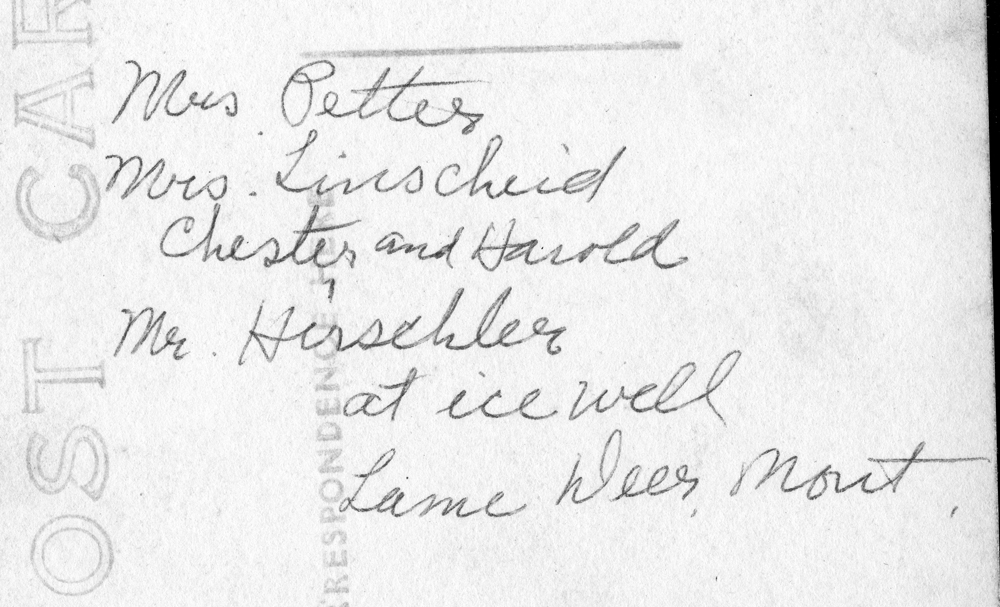 Mrs. Petter
Mrs. Linscheid
Chester and Harold
Mr. Hirschler
at ice well
Lame Deer, Mont.
OST CAR
RESPONDENCE HERE